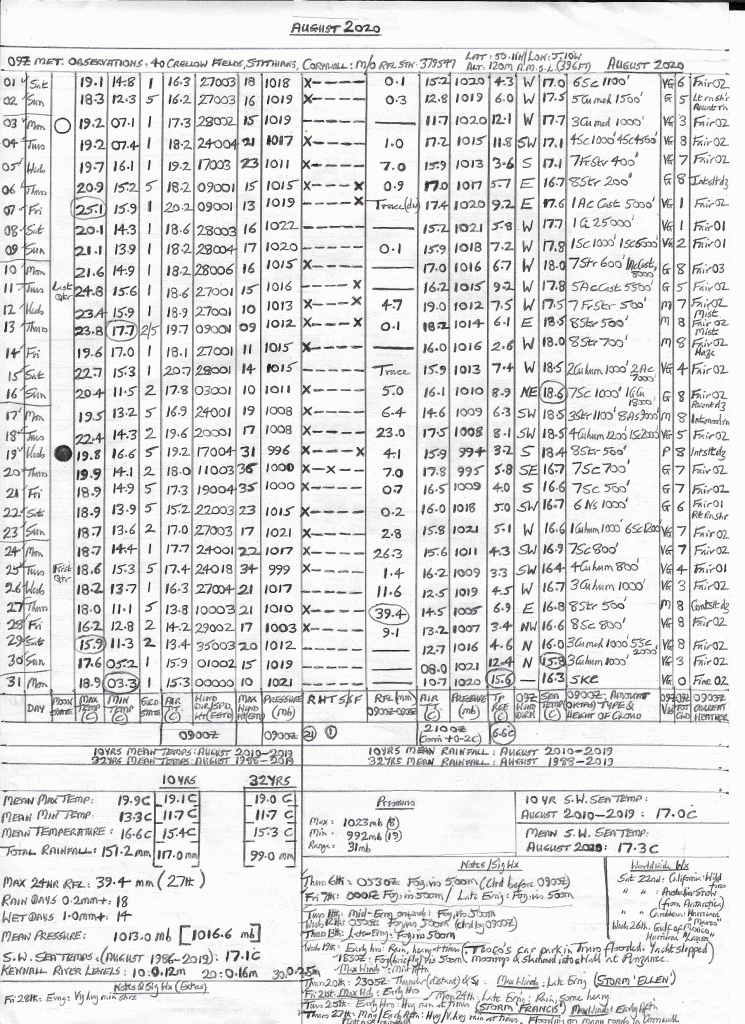 AUGUST 2020
09Z MET. OBSERVATIONS: 40 CRELLOW FIELDS, STITHIANS, CORNWALL: M/O RFL STN: 379547 LAT: 50.11N/LON: 5.10W ALT: 120m A.M.S.L (396FT) AUGUST 2020
01 Sat 19.1 14.8 1 16.3 27003 18 1018 X---- 0.1 15.2 1020 4.3 W 17.0 6Sc 1100' VG 6 Fair 02
02 Sun 18.3 12.3 5 16.2 27003 16 1019 X---- 0.3 12.8 1019 6.0 W 17.5 5Cumed 1500' G 5
03 Mon 19.2 07.1 1 17.3 28002 15 1019 ----- 11.7 1020 12.1 W 17.7 3Cumed 1000' VG 3 Fair 02
04 Tues 19.2 07.4 1 18.2 24004 21 1017 X---- 1.0 17.2 1015 11.8 SW 17.1 4Sc1000' 4Sc4500' VG 8 Fair 02
05 Wed 19.7 16.1 1 19.2 17003 23 1011 X---- 7.0 15.9 1013 3.6 S 17.1 7FrStr 400' VG 7 Fair 02
06 Thurs 20.9 15.2 5 18.2 09001 15 1015 X---X 0.9 17.0 1017 5.7 E 16.7 8Str 200' G 8
07 Fri 25.1 15.9 1 20.2 09001 13 1019 ----X Trace 17.4 1020 9.2 E 17.6 1Ac Cast 5000' VG 1 Fair 02
08 Sat 20.1 14.3 1 18.6 28003 16 1022 ----- 15.2 1021 5.8 W 17.7 1Ci 25000' VG 1 Fair 01
09 Sun 21.1 13.9 1 18.2 28004 17 1020 ----- 0.1 15.9 1018 7.2 W 17.8 1Sc1000' 1Sc6500' VG 2 Fair 01
10 Mon 21.6 14.9 1 18.2 28006 16 1015 X---- 17.0 1016 6.7 W 18.0 7Str 600' G 8 Fair 03
11 Tues Last Qtr 24.8 15.6 1 18.6 27001 15 1016 ----X 16.2 1015 9.2 W 17.8 5AcCast 5500' G 5 Fair 02
12 Wed 23.4 15.9 1 18.9 27001 10 1013 X---X 4.7 19.0 1012 7.5 W 17.5 7FrStr 500' M 7 Fair 02 Mist
13 Thurs 23.8 17.7 2/5 19.7 09001 09 1012 ----X 0.1 18.2 1014 6.1 E 18.5 8Str 500' M 8 Fair 02 Mist
14 Fri 19.6 17.0 1 18.1 27001 11 1015 X---- 16.0 1016 2.6 W 18.0 8Str 700' M 8 Fair 02 Haze
15 Sat 22.7 15.3 1 20.7 28001 14 1015 ----- Trace 15.9 1013 7.4 W 18.5 2Cuhum 1000' 2Ac 7000' VG 4 Fair 02
16 Sun 20.4 11.5 2 17.8 03001 10 1011 X---- 5.0 16.1 1010 8.9 NE 18.6 7Sc 1000' G 8 Fair 02
17 Mon 19.5 13.2 5 16.9 24001 19 1008 X---- 6.4 14.6 1009 6.3 SW 18.5 3Str1100' 8As9000' M 8
18 Tues 22.4 14.3 2 19.6 20001 17 1008 X---- 23.0 17.5 1008 8.1 SW 18.5 4Cuhum1200' VG 5 Fair 02
19 Wed 19.8 16.6 5 19.2 17004 31 996 X---X 4.1 15.9 994 3.2 S 18.4 8Str 500' P 8
20 Thurs 19.9 14.1 2 18.0 11003 36 1000 X-X-- 7.0 17.8 995 5.8 SE 16.7 7Sc 700' G 7 Fair 02
21 Fri 18.9 14.9 5 17.3 19004 35 1000 X---- 0.7 16.5 1009 4.0 S 16.6 7Sc 500' G 7 Fair 02
22 Sat 18.9 13.9 5 15.2 22003 23 1015 X---- 0.2 16.0 1018 5.0 SW 16.7 6Ns 1000' G 6 Fair 01
23 Sun 18.7 13.6 2 17.0 27003 17 1021 X---- 2.8 15.8 1021 5.1 W 16.6 1Cuhum 1000' 6Sc1200' VG 7 Fair 02
24 Mon 18.7 14.4 1 17.7 24001 22 1017 X---- 26.3 15.6 1011 4.3 SW 16.9 7Sc 800' VG 7 Fair 02
25 Tues First Qtr 18.6 15.3 5 17.4 24018 34 999 X---- 1.4 16.2 1009 3.3 SW 16.4 4Cuhum 800' VG 4 Fair 01
26 Wed 18.2 13.7 1 16.3 27004 21 1017 X---- 11.6 12.5 1019 4.5 W 16.7 3Cuhum 1000' VG 3 Fair 02
27 Thurs 18.0 11.1 5 13.8 10003 21 1010 X---- 39.4 14.5 1005 6.9 E 16.8 8Str 500' M 8
28 Fri 16.2 12.8 2 14.2 29002 17 1003 X---- 9.1 13.2 1007 3.4 NW 16.6 8Sc 800' G 8 Fair 02
29 Sat 15.9 11.3 2 13.4 35003 20 1012 ----- 12.7 1016 4.6 N 16.0 3Cumed 1000' 5Sc 2000' VG 8 Fair 02
30 Sun 17.6 05.2 1 15.9 01002 15 1019 ----- 08.0 1021 12.4 N 15.8 3Cuhum 1000' VG 3 Fair 02
31 Mon 18.9 03.3 1 15.5 00000 10 1021 ----- 10.7 1020 15.6 — 16.3 SKC VG 0 Fine 02
DAY MOON STATE MAX TT (C) MIN TEMP (C) GRD STATE AIR TT (C) WIND DIR/SPD KT (ESTD) MAX WIND KT (ESTD) PRESSURE (mb) R H T S F RFL (mm) 0900Z-0900Z AIR TT (C) PRESSURE (mb) TP RGE (C) 09Z WIND DIRN SEA TEMP (C) 0900Z: AMOUNT (OKTAS) TYPE & HEIGHT OF CLOUD 09Z VIS 09Z TOT CLD 0900Z CURRENT WEATHER
0900Z 0900Z 21 1 2100Z 6.6C
10YRS MEAN TEMPS: AUGUST 2010-2019 10YRS MEAN RAINFALL: AUGUST 2010-2019
32YRS MEAN TEMPS: AUGUST 1988-2019 32YRS MEAN RAINFALL: AUGUST 1988-2019
10YRS 32YRS
MEAN MAX TEMP: 19.9C 19.1C 19.0C
MEAN MIN TEMP: 13.3C 11.7C 11.7C
MEAN TEMPERATURE: 16.6C 15.4C 15.3C
TOTAL RAINFALL: 151.2mm 117.0mm 99.0mm
MAX 24HR RFL: 39.4 mm (27th)
RAIN DAYS 0.2mm+: 18
WET DAYS 1.0mm+: 14
MEAN PRESSURE: 1013.0 mb [1016.6 mb]
S.W. SEA TEMPS (AUGUST 1986-2019): 17.1C
KENNALL RIVER LEVELS: 10: 0.12m 20: 0.16m 30: 0.25m
Notes & Sig Wx (Extras)
Fri 28th: Evng:
Pressures
Max: 1023mb (8)
Min: 992mb (19)
Range: 31mb
10 YR S.W. SEA TEMP:
AUGUST 2010-2019: 17.0C
MEAN S.W. SEA TEMP:
AUGUST 2020: 17.3C
Notes/Sig Wx
Thurs 6th: 0530Z Fog, vis 500m (Clrd before 0900Z)
Fri 7th: 0001Z Fog, vis 500m / Late Evng: Fog, vis 500m
Tues 11th: Mid-Evng onwards: Fog, vis 500m
Wed 12th: Fog, vis 500m (clrd by 0900Z)
Thurs 13th: Late-Evng: Fog, vis 500m
Wed 19th: Early hrs: Rain, heavy at times
Thurs 20th: 2305Z: Thunder (distant) & Max Winds: Late Evng (STORM 'ELLEN')
Fri 21st: Max Wnd: Early Hrs Mon 24th: Late Evng: Rain, some heavy
Tues 25th: Early Hrs: rain at times (STORM 'FRANCIS') Max Winds: Early Aftn
Thurs 27th:
Worldwide Wx
Sat 22nd: California: Wild fires
" " : Australia: Snow (from Antarctica)
" " : Caribbean: Hurricane
Wed 26th: Gulf of Mexico, Hurricane 'Laura'